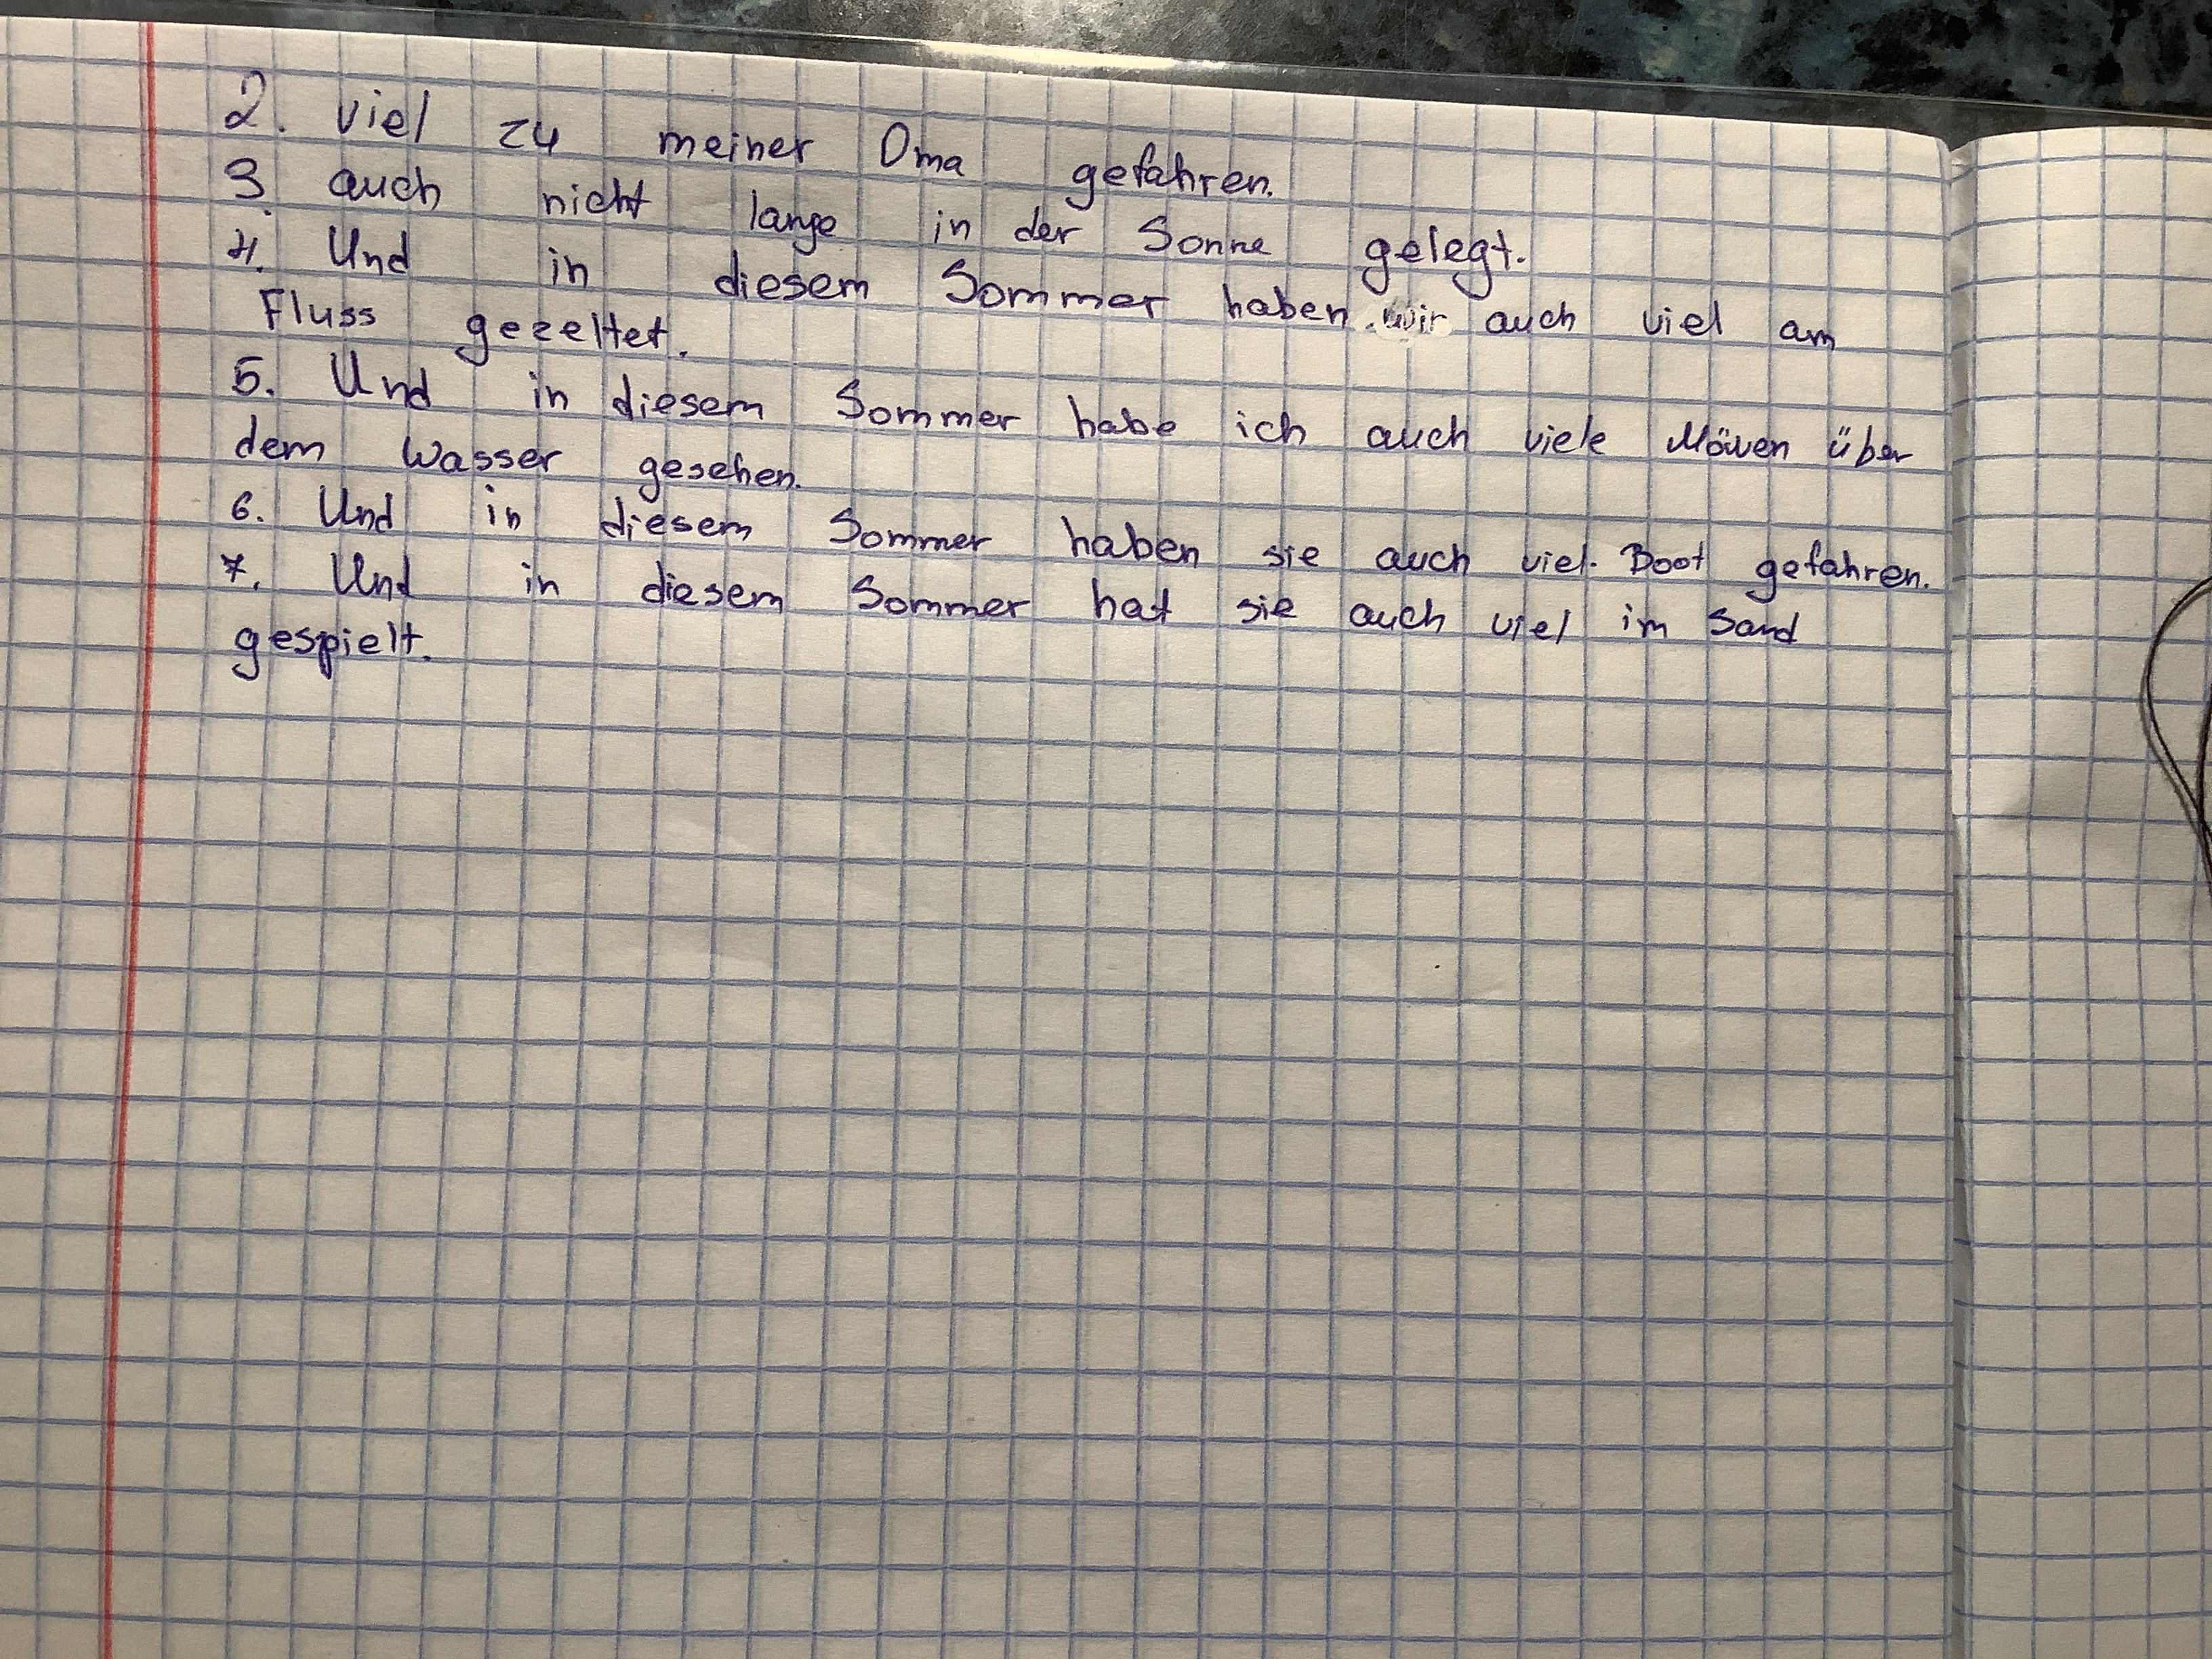 2. viel zu meiner Oma gefahren.
3. auch nicht lange in der Sonne gelegt.
4. Und in diesem Sommer haben wir auch viel am
Fluss gezeltet.
5. Und in diesem Sommer habe ich auch viele Möwen über
dem Wasser gesehen.
6. Und in diesem Sommer haben sie auch viel Boot gefahren.
7. Und in diesem Sommer hat sie auch viel im Sand
gespielt.